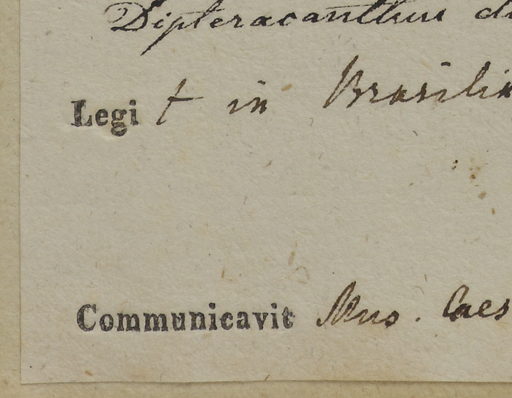 Dipteracanthus d
Legit in Brasili
Communicavit Mus. Caes